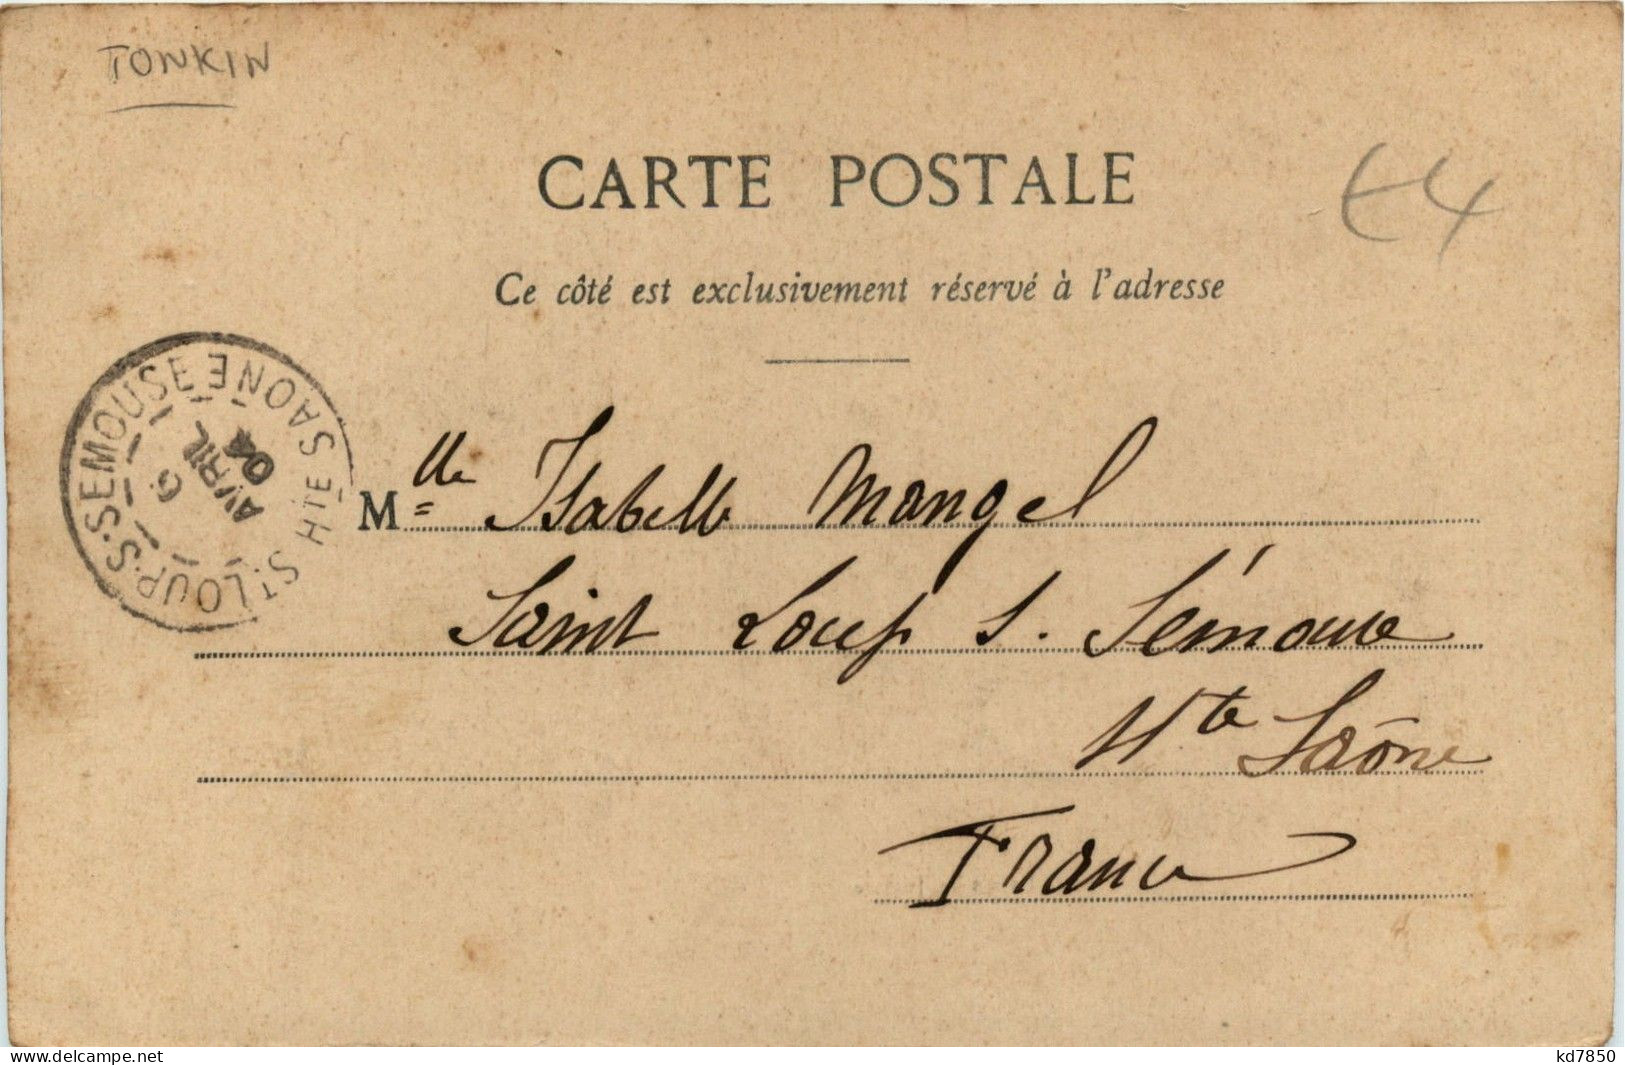 TONKIN
CARTE POSTALE
€4
Ce côté est exclusivement réservé à l'adresse
ST LOUP-S-SEMOUSE HTE SAONE
6
AVRIL
04
Mlle Isabelle Mangel
Saint Loup s. Sémouse
Hte Saône
France
www.delcampe.net
kd7850